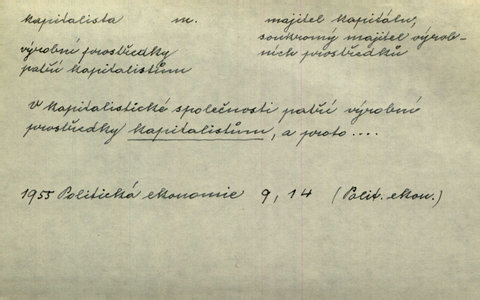 kapitalista m. majitel kapitálu,
soukromý majitel výrob-
ních prostředků
výrobní prostředky
patří kapitalistům
V kapitalistické společnosti patří výrobní
prostředky kapitalistům, a proto ....
1955 Politická ekonomie 9, 14 (Polit. ekon.)